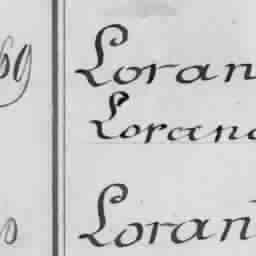 69 Loran
Loran
Loran